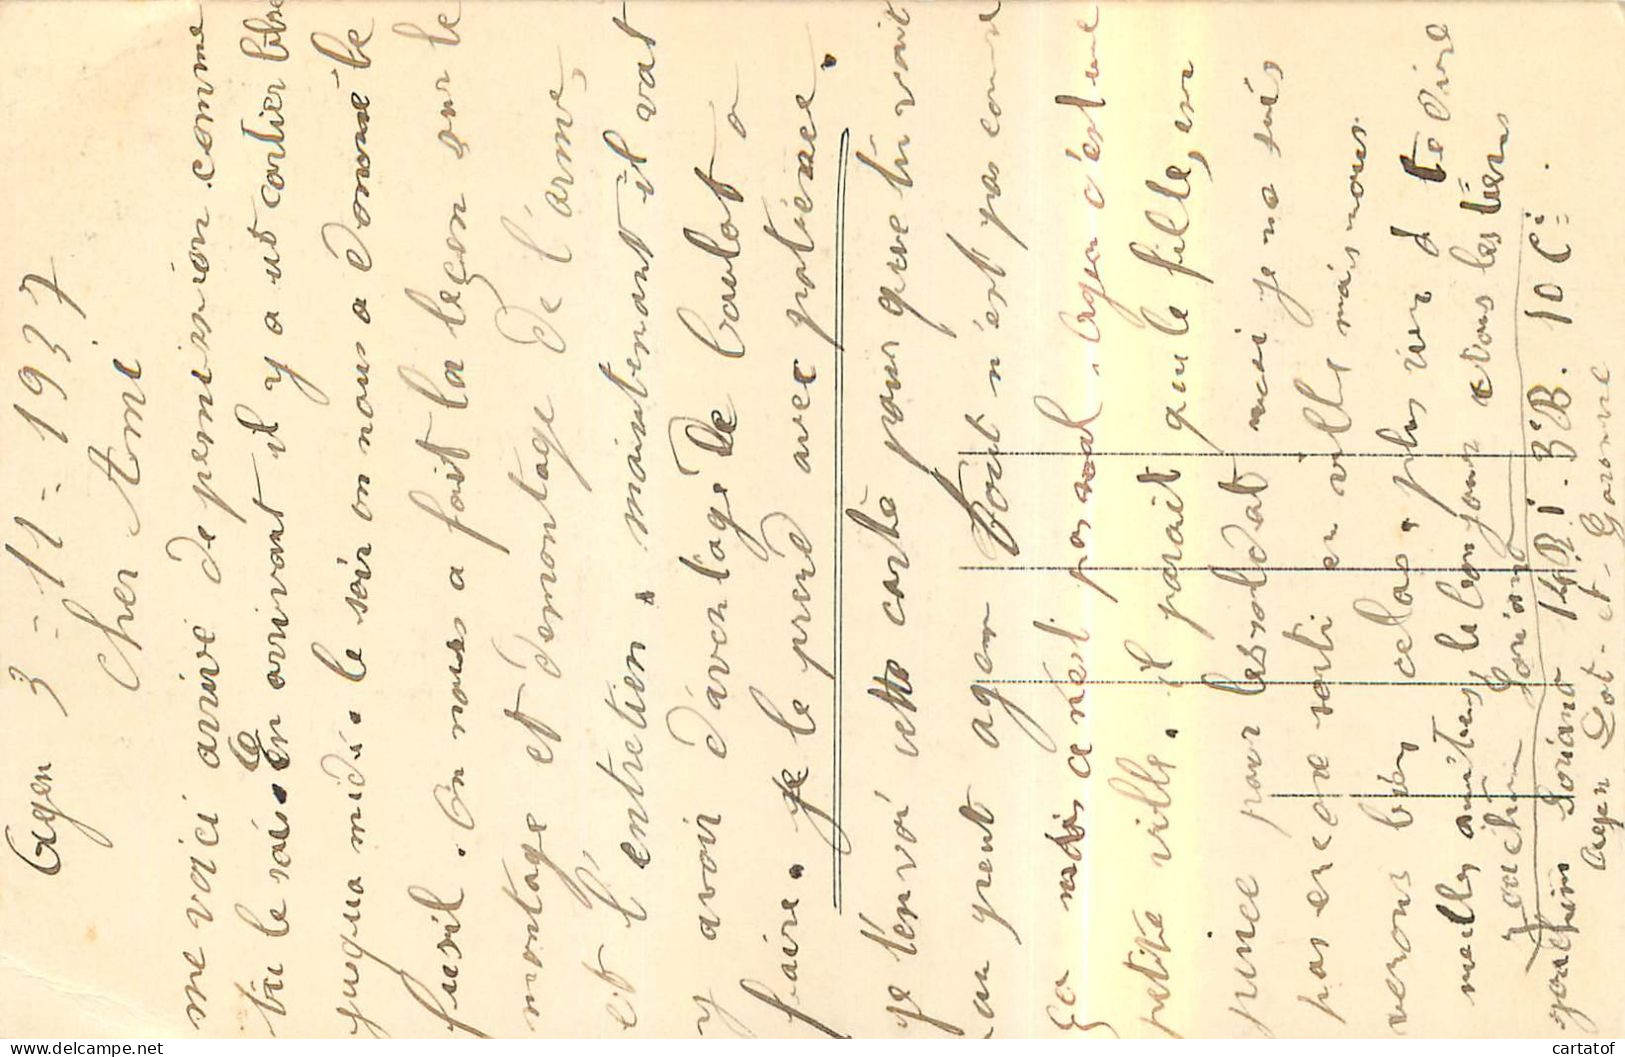 Agen 3-11-1937
Cher Ami
me voici arrivé de permission comme
tu le sais. En arrivant il y a ut cartier libre
jusqua midi. le soir on nous a donné le
fusil. On nous a fait la leçon sur le
montage et démontage de l'arme,
et l'entretien. maintenant il vat
y avoir d'aventage de boulot a
faire. je le prend avec patience.
je t'envoi cette carte pour que tu voit
un peut agen tout n'est pas comme
ça mais ce n'est pas mal. Agen c'est une
petite ville. il parait que le fille, en
pince pour les soldat moi je ne suis
pas encore sorti en ville mais nous
verons bien celas. plus rien a te dire
meilles amitiés, le bonjour a tous les tiens
Joachim Soriano
Joachim Soriano 14 R.I. 3 B. 10 Ci
Agen Lot-et-Garonne
cartatof